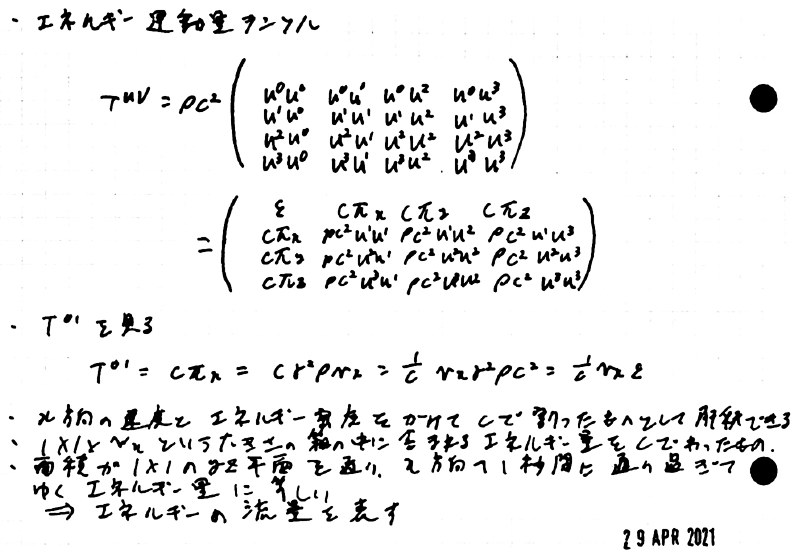 ・エネルギー運動量テンソル
T^{μν} = ρc² ( u⁰u⁰ u⁰u¹ u⁰u² u⁰u³
u¹u⁰ u¹u¹ u¹u² u¹u³
u²u⁰ u²u¹ u²u² u²u³
u³u⁰ u³u¹ u³u² u³u³ )
= ( ε cπx cπy cπz
cπx ρc²u¹u¹ ρc²u¹u² ρc²u¹u³
cπy ρc²u²u¹ ρc²u²u² ρc²u²u³
cπz ρc²u³u¹ ρc²u³u² ρc²u³u³ )
・T⁰¹を見る
T⁰¹ = cπx = cγ²ρvx = 1/c vxγ²ρc² = 1/c vxε
・x方向の速度とエネルギー密度をかけてcで割ったものとして解釈できる
・1×1×vxという大きさの箱の中に含まれるエネルギー量をcでわったもの.
・面積が1×1のyz平面を通り、x方向へ1秒間に通り過ぎて
ゆくエネルギー量に等しい
⇒エネルギーの流量を表す
29 APR 2021